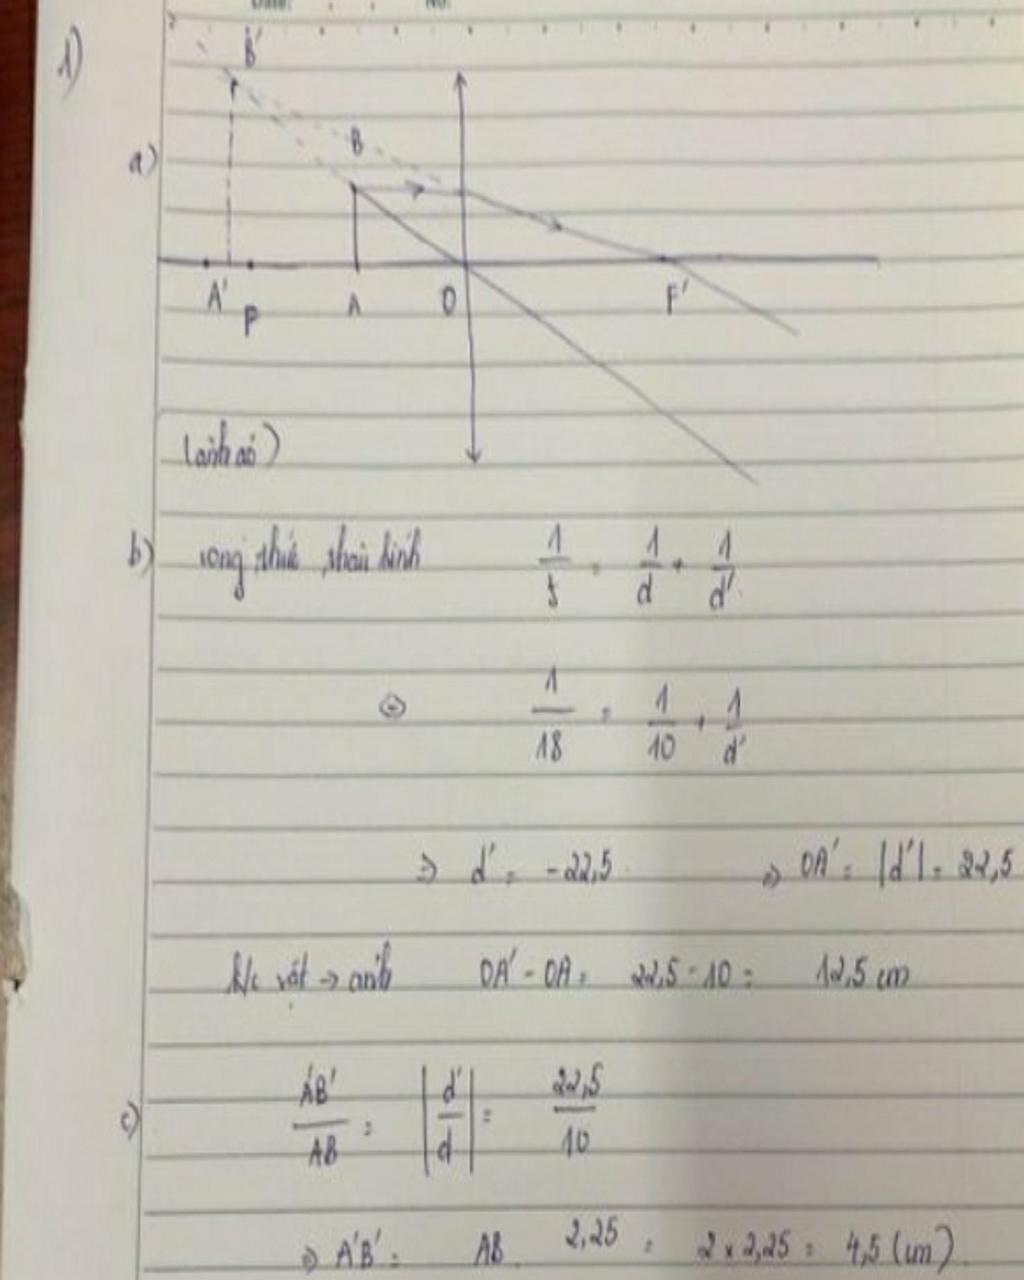 1)
a)
B'
B
A' P A O F'
(ảnh ảo)
b) thức thấu kính 1/f = 1/d + 1/d'
⇔ 1/18 = 1/10 + 1/d'
⇒ d' = -22,5 ⇒ OA' = |d'| = 22,5
k/c vật → ảnh OA' - OA = 22,5 - 10 = 12,5 cm
c) A'B'/AB = |d'/d| = 22,5/10
⇒ A'B' = AB 2,25 = 2 x 2,25 = 4,5 (cm)